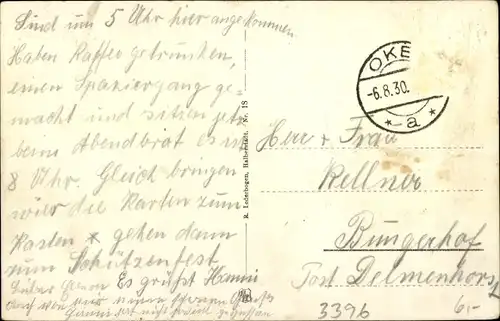 Sind um 5 Uhr hier angekommen.
Haben Kaffee getrunken,
einen Spaziergang ge-
macht und sitzen jetzt
beim Abendbrot es ist
8 Uhr. Gleich bringen
wir die Karten zum
Kasten + gehen dann
zum Schützenfest
Es grüßt Hanni
R. Lederbogen, Halberstadt. Nr. 18
OKE
-6.8.30.
* a *
Herr + Frau
Kellner
Bungerhof
Post Delmenhorst
3396
6,-